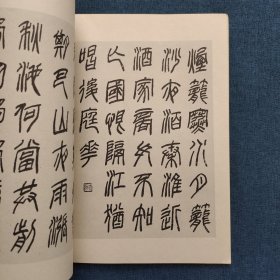 煙籠寒水月籠
沙夜泊秦淮近
酒家商女不知
亡國恨隔江猶
唱後庭花
期巴山夜雨漲
秋池何當共剪